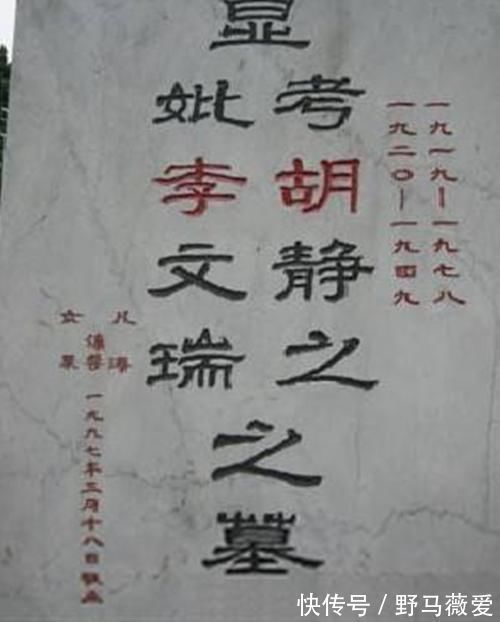 一九一九—一九七八
一九二〇—一九四九
显
考胡静之
妣李文瑞
之墓
儿 海
女 果
一九九七年三月十八日敬立
快传号 / 野马薇爱